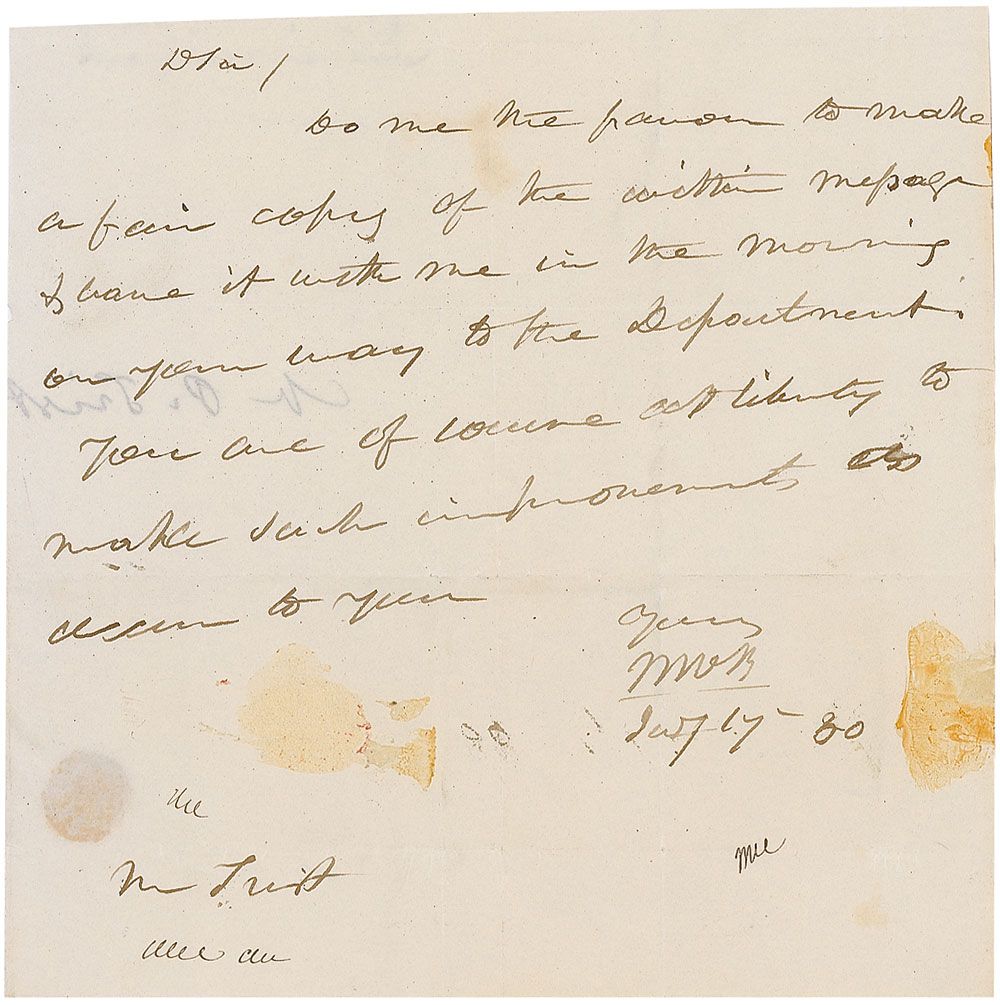 D Sir /
Do me the favour to make
a fair copy of the within message
& leave it with me in the morning
on your way to the Department.
You are of course at liberty to
make such improvements as
occur to you
Yours
MVB
17 30
Mr Trist
N P. Trist